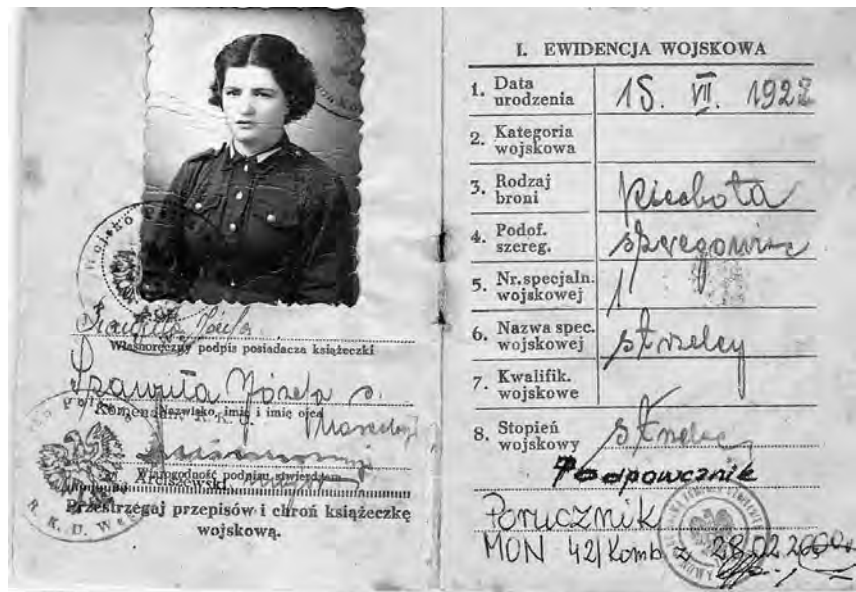 Wojsko
Szawuła Józefa
Własnoręczny podpis posiadacza książeczki
Szawuła Józefa c.
Nazwisko, imię i imię ojca
Komendant R.K.U.
Wiarygodność podpisu stwierdzam
Przestrzegaj przepisów i chroń książeczkę
wojskową.
R. K. U.
I. EWIDENCJA WOJSKOWA
1. Data urodzenia 15. VII. 1922
2. Kategoria wojskowa
3. Rodzaj broni piechota
4. Podof. szereg. szeregowiec
5. Nr. specjaln. wojskowej 1
6. Nazwa spec. wojskowej strzelcy
7. Kwalifik. wojskowe
8. Stopień wojskowy strzelec
Podporucznik
Porucznik
MON 42/Komb z 28.02.2000